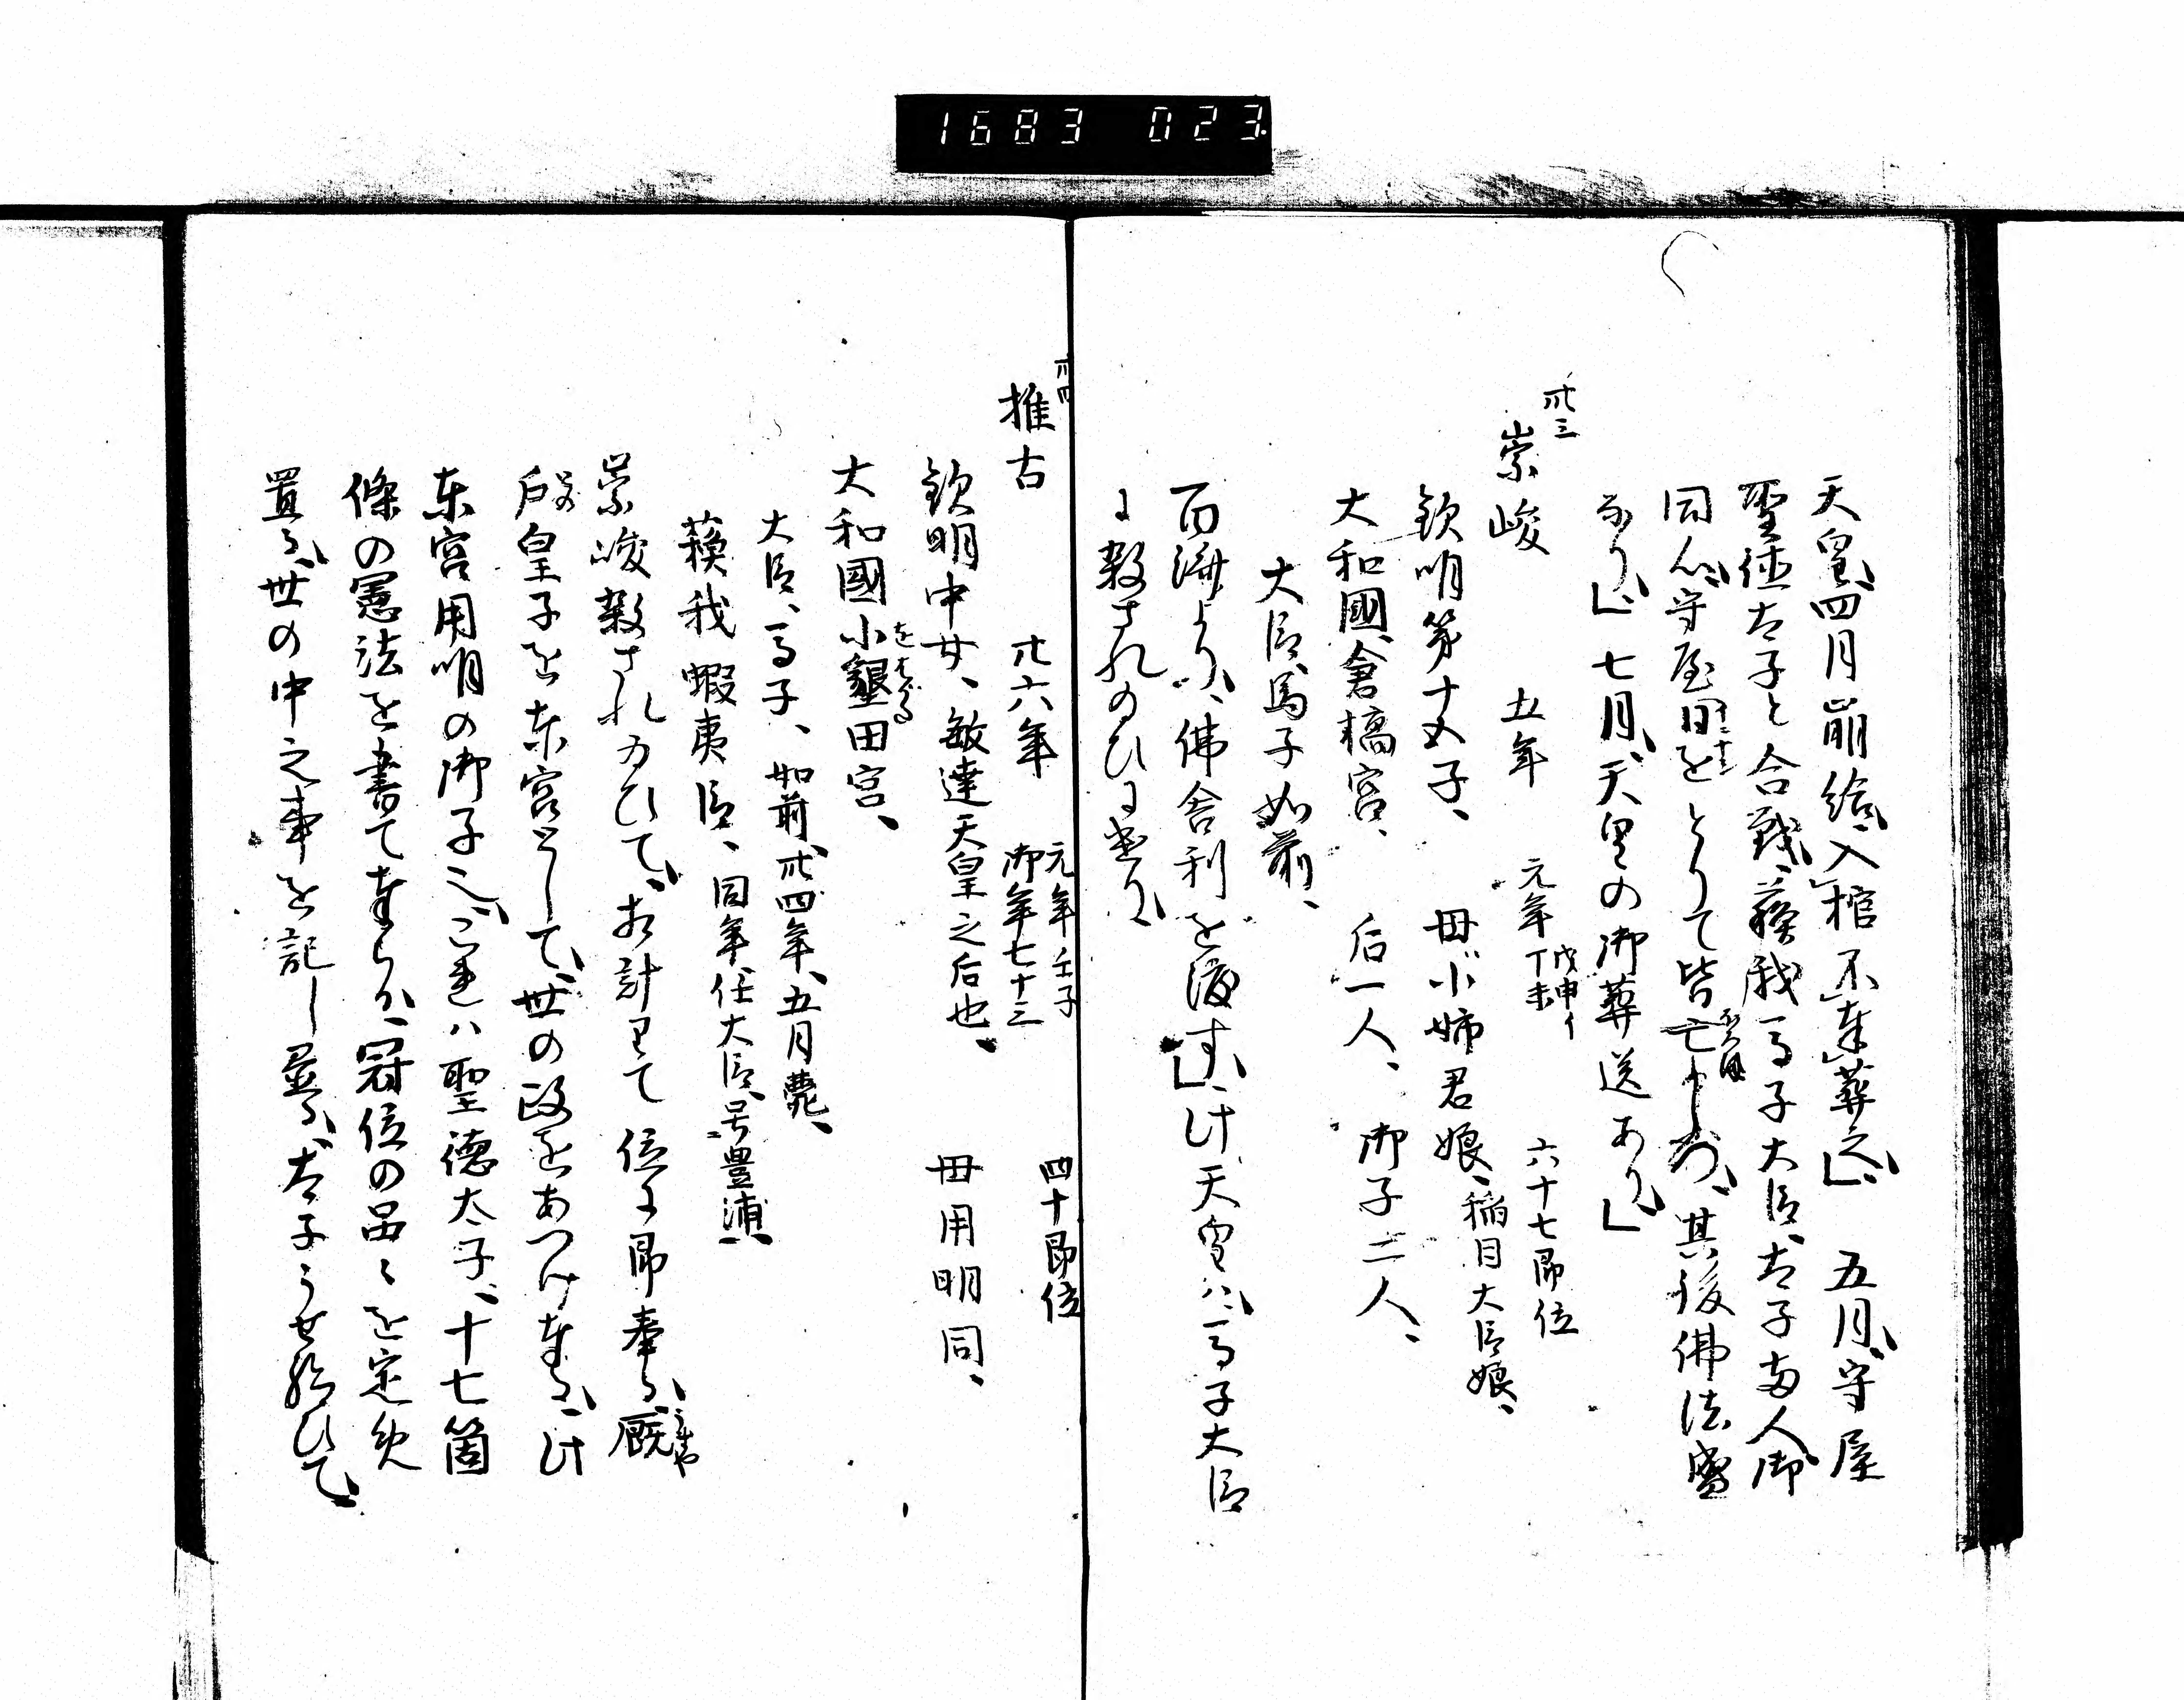 1683 023.
天皇四月崩給、入棺不奉葬之、五月守屋
聖徳太子と合戦、蘇我馬子大臣、太子両人御
同心、守屋目をとりて皆亡しつ、其後佛法盛
なり、七月、天皇の御葬送あり、
卅三
崇峻 五年 元年丁未 戊申イ 六十七即位
欽明第十五子、母小姉君娘、稲目大臣娘、
大和國倉橋宮、后一人、御子二人、
大臣馬子如前、
百済より、佛舎利を渡す、此天皇ハ馬子大臣
に殺されのひにき
卅四
推古 卅六年 元年壬子 御年七十三 四十即位
欽明中女、敏達天皇之后也、母用明同、
大和國小墾田宮、
をはる
大臣、馬子、如前、卅四年、五月薨、
蘇我蝦夷臣、同年任大臣、号豊浦、
崇峻殺されのひて、相計て位に即奉る、厩
うまや
戸皇子を東宮として、世の政をあつけ奉る、此
東宮用明の御子也、これハ聖徳太子、十七箇
條の憲法を書て奉らる、冠位の品々を定
置る、世の中之事を記し、太子うせ給ひて、